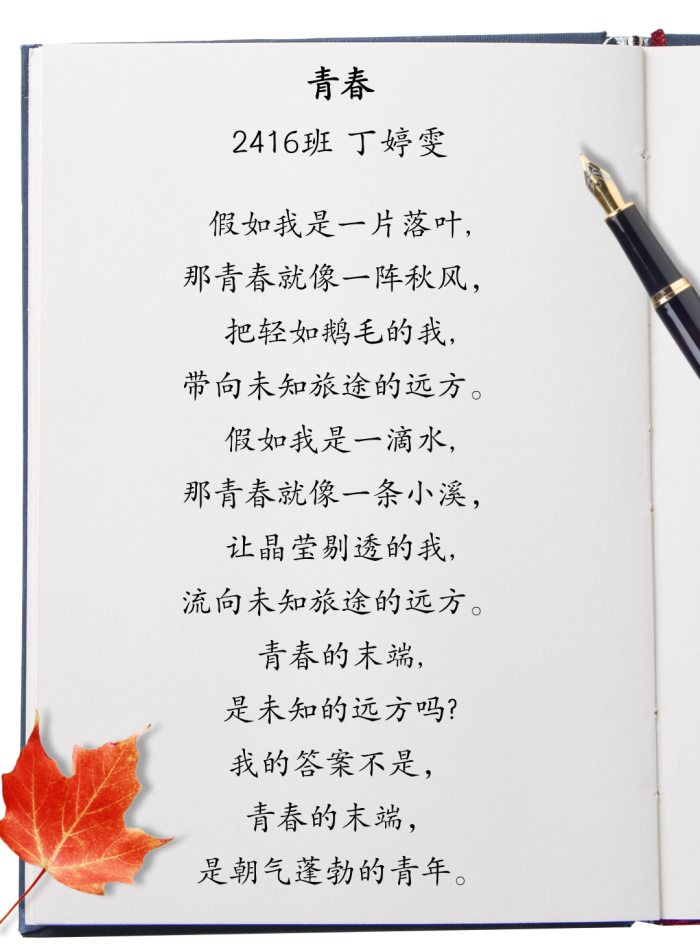 青春
2416班 丁婷雯
假如我是一片落叶,
那青春就像一阵秋风，
把轻如鹅毛的我,
带向未知旅途的远方。
假如我是一滴水,
那青春就像一条小溪，
让晶莹剔透的我,
流向未知旅途的远方。
青春的末端,
是未知的远方吗?
我的答案不是，
青春的末端，
是朝气蓬勃的青年。